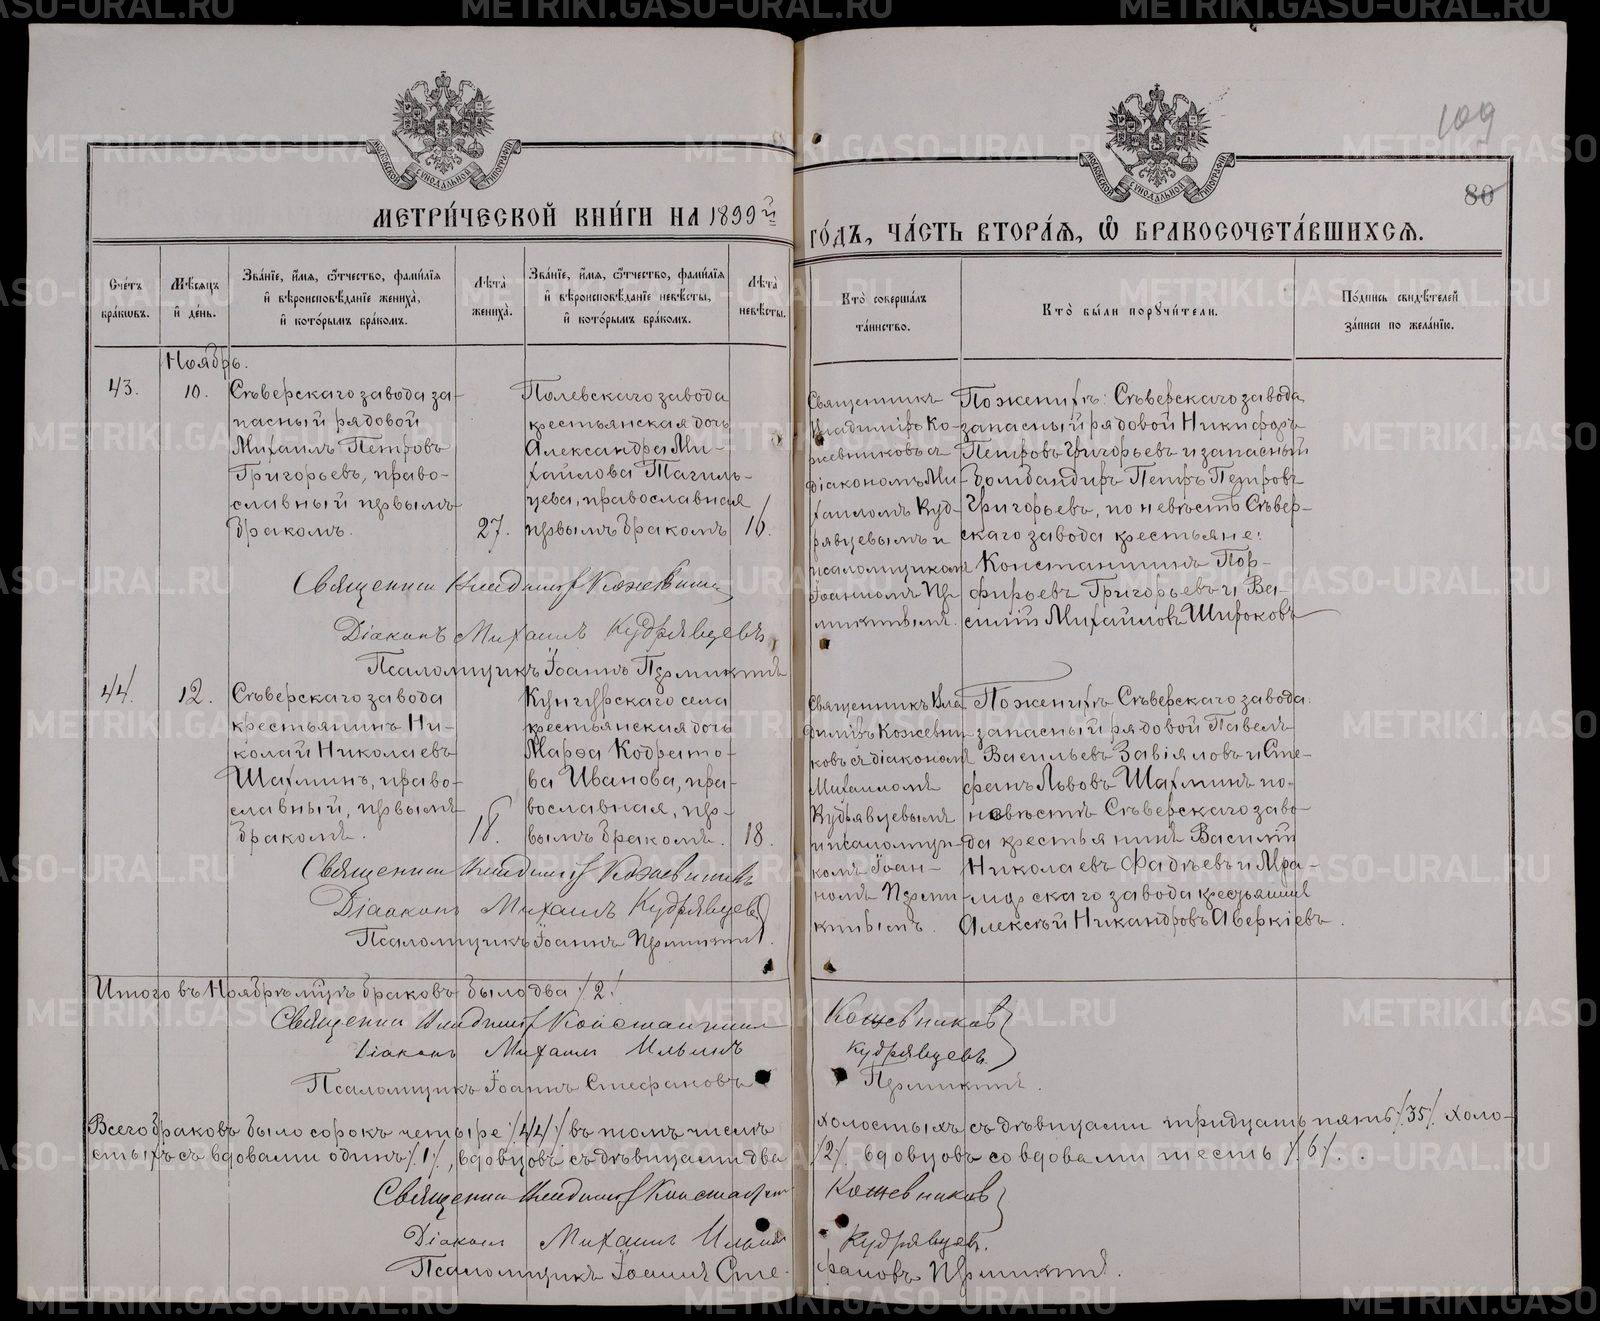 109
80
МЕТРИ́ЧЕСКОЙ КНИ́ГИ НА 1899й
ГО́ДЪ, ЧА́СТЬ ВТОРА́Я, Ѡ БРАКОСОЧЕТА́ВШИХСЯ.
Сче́тъ бра́кωвъ.
Мѣ́сяцъ й де́нь.
Зва́нїе, и́мя, ѻ́тчество, фами́лїя
й вѣроисповѣ́данїе жениха̀,
й кото́рымъ бра́комъ.
Лѣ́та̀ жениха̀.
Зва́нїе, и́мя, ѻ́тчество, фами́лїя
й вѣроисповѣ́данїе невѣ́сты,
й кото́рымъ бра́комъ.
Лѣ́та̀ невѣ́сты.
Кто̀ соверша́лъ
та́инство.
Кто̀ бы́ли порꙋчи́тели.
По́дпись свидѣ́телей
за́писи по жела́нїю.
Ноябрь.
43.
10.
Сѣверскаго завода за-
пасный рядовой
Михаилъ Петровъ
Григорьевъ, право-
славный первымъ
бракомъ.
27.
Полевскаго завода
крестьянская дочь
Александра Ми-
хайлова Тагиль-
цева, православная
первымъ бракомъ
16.
Священникъ
Владимiръ Ко-
жевниковъ съ
дiакономъ Ми-
хаиломъ Куд-
рявцевымъ и
псаломщикомъ
Iоанномъ Пер-
микинымъ.
Поженихѣ: Сѣверскаго завода
запасный рядовой Никифоръ
Петровъ Григорьевъ и запасный
бомбандиръ Петръ Петровъ
Григорьевъ, по невѣстѣ Сѣвер-
скаго завода крестьяне:
Константинъ Пор-
фирьевъ Григорьевъ и Ва-
силiй Михайловъ Широковъ
Священникъ Владимiръ Кожевниковъ
Дiаконъ Михаилъ Кудрявцевъ
Псаломщикъ Iоаннъ Пермикинъ
44.
12.
Сѣверскаго завода
крестьянинъ Ни-
колай Николаевъ
Шахминъ, право-
славный, первымъ
бракомъ.
18.
Кунгурскаго села
крестьянская дочь
Марѳа Кодрато-
ва Иванова, пра-
вославная, пер-
вымъ бракомъ.
18.
Священникъ Вла-
димiръ Кожевни-
ковъ съ дiакономъ
Михаиломъ
Кудрявцевымъ
и псаломщи-
комъ Iоан-
номъ Перми-
кинымъ.
Поженихѣ Сѣверскаго завода:
запасный рядовой Павелъ
Васильевъ Завiяловъ и Сте-
фанъ Львовъ Шахминъ по-
невѣстѣ Сѣверскаго заво-
да крестьянинъ Василiй
Николаевъ Фадѣевъ и Мра-
морскаго завода крестьянинъ
Алексѣй Никандровъ Аверкiевъ.
Священникъ Владимiръ Кожевниковъ
Дiаконъ Михаилъ Кудрявцевъ
Псаломщикъ Iоаннъ Пермикинъ.
Итого въ Ноябрѣ мцѣ браковъ было два /2/
Священникъ Владимiръ Константиновъ Кожевниковъ
Дiаконъ Михаилъ Ильинъ Кудрявцевъ.
Псаломщикъ Iоаннъ Стефановъ Пермикинъ.
Всего браковъ было сорокъ четыре /44/ въ томъ числѣ холостыхъ съ дѣвицами тридцать пять /35/. холо-
стыхъ съ вдовами одинъ /1/, вдовцовъ съ дѣвицами два /2/. вдовцовъ со вдовами шесть /6/.
Священникъ Владимiръ Константиновъ Кожевниковъ
Дiаконъ Михаилъ Ильинъ Кудрявцевъ.
Псаломщикъ Iоаннъ Сте-фановъ Пермикинъ.
METRIKI.GASO-URAL.RU